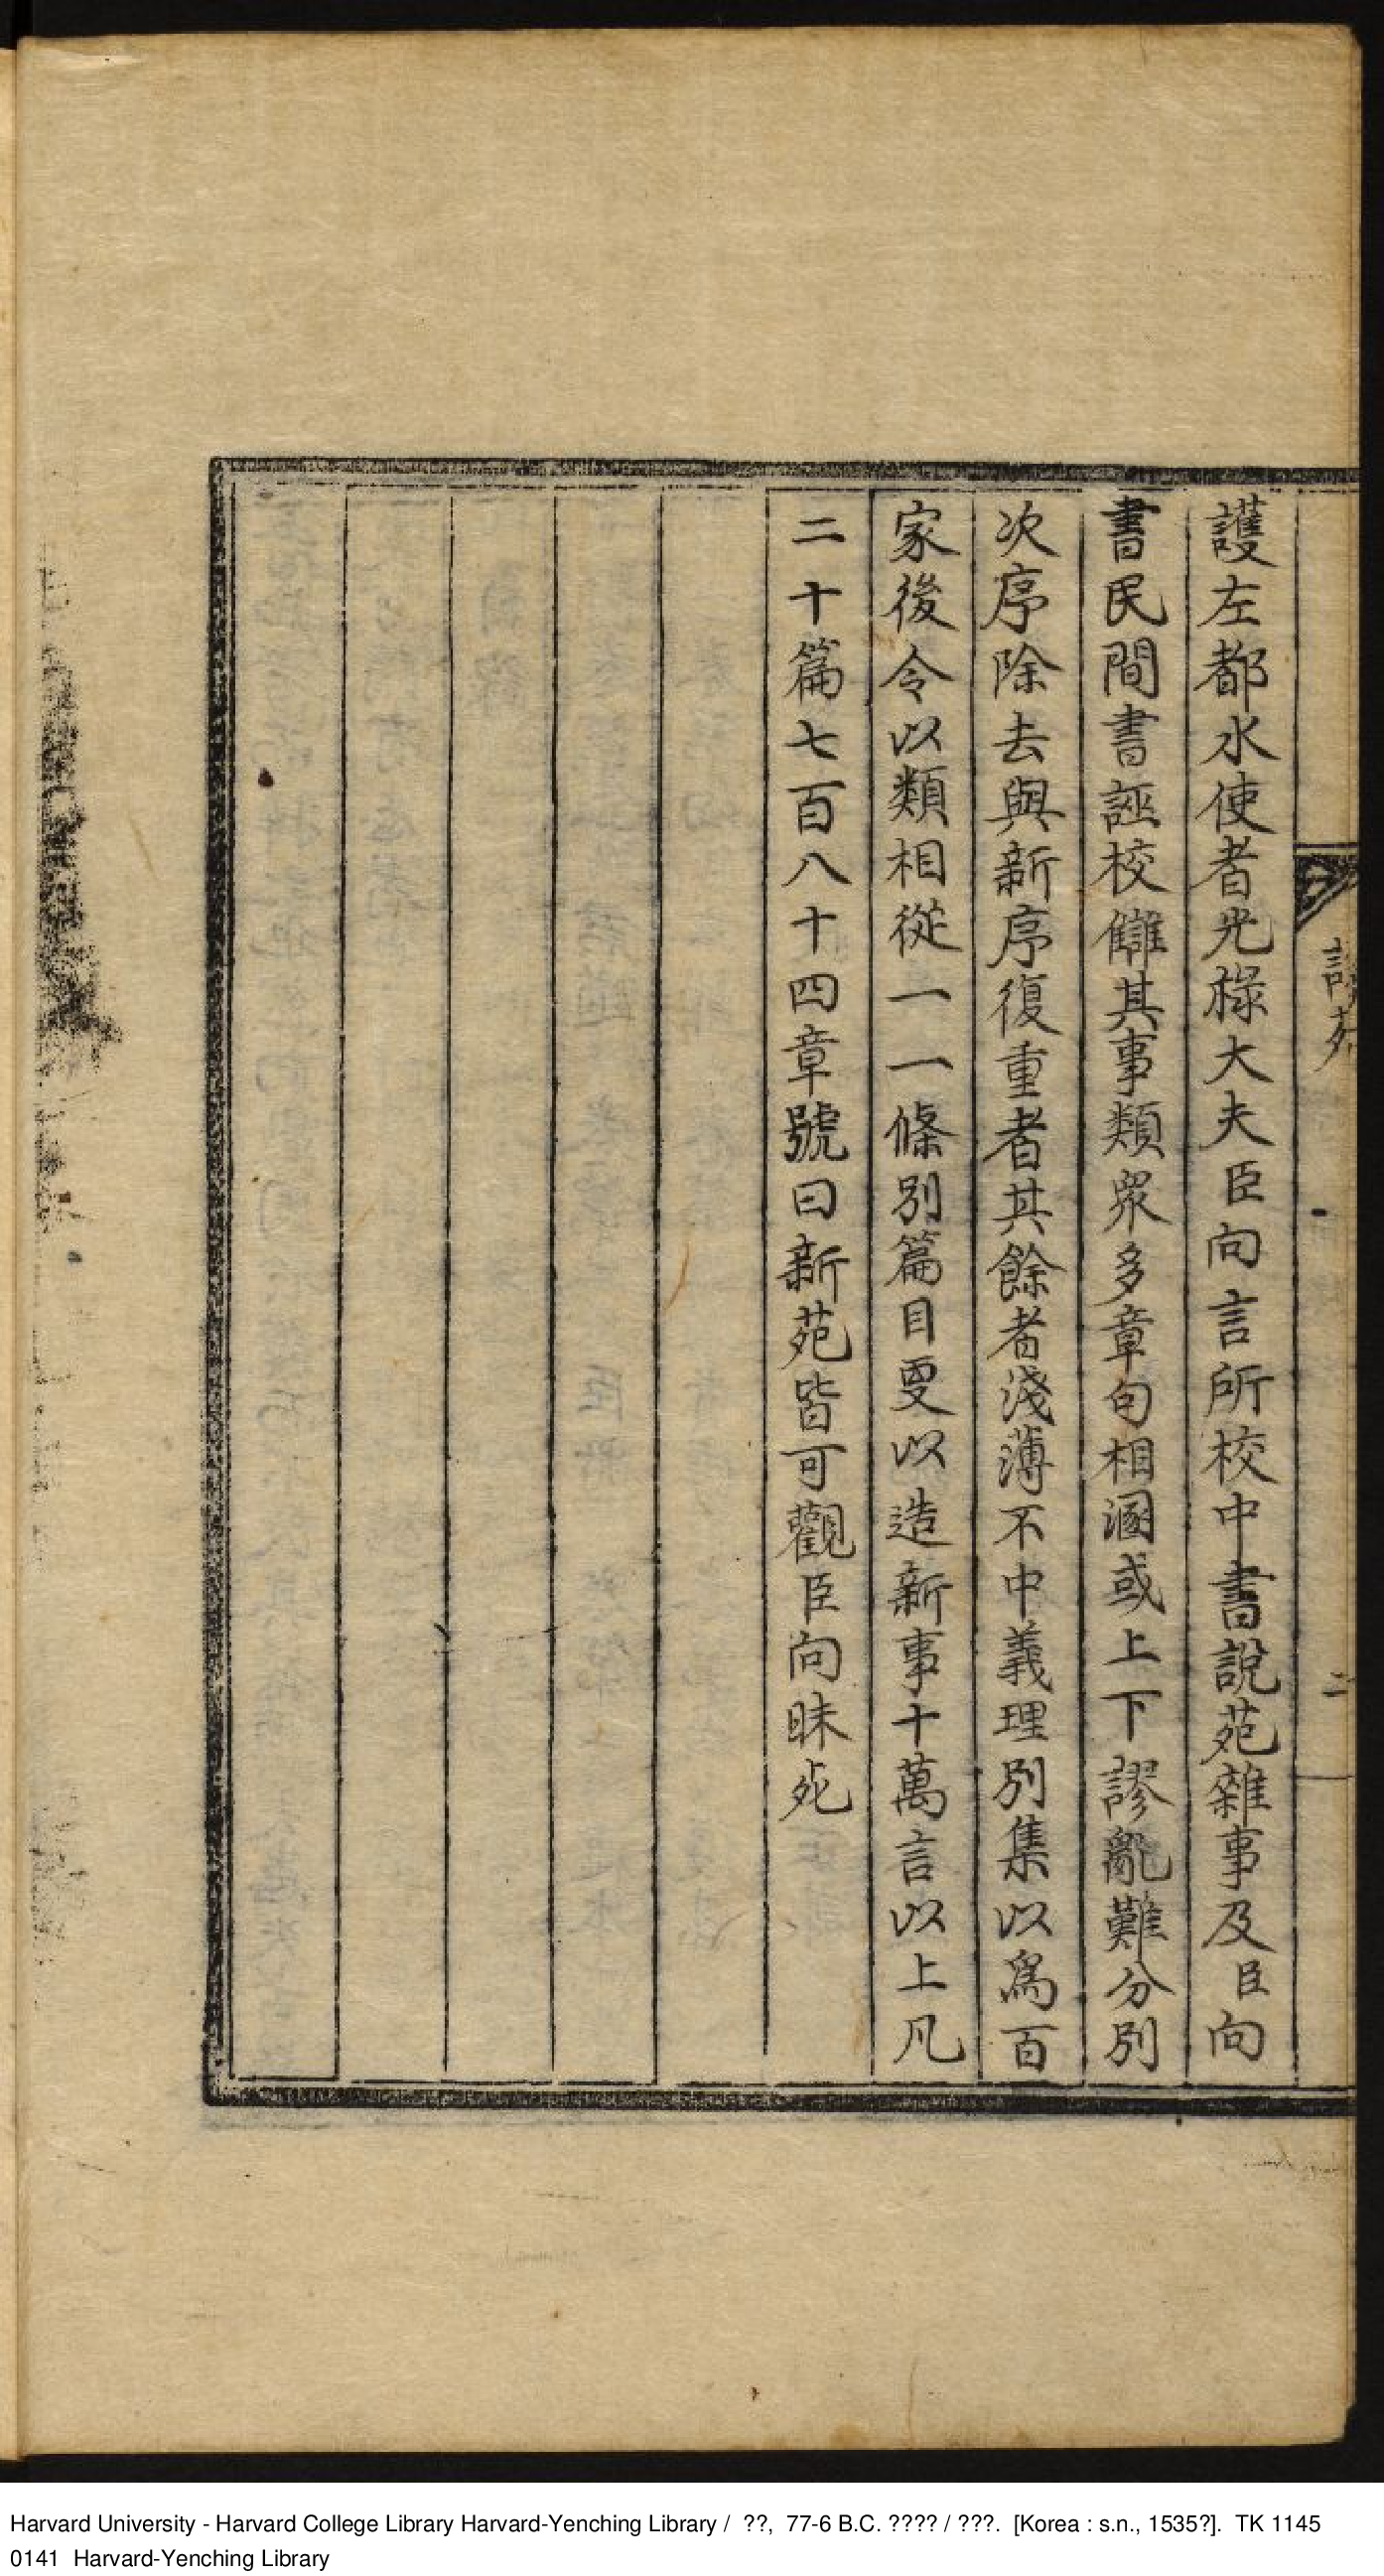 說苑
二
護左都水使者光祿大夫臣向言所校中書說苑雜事及臣向
書民間書誣校讎其事類衆多章句相溷或上下謬亂難分別
次序除去與新序復重者其餘者淺薄不中義理別集以爲百
家後令以類相從一一條別篇目更以造新事十萬言以上凡
二十篇七百八十四章號曰新苑皆可觀臣向昧死
Harvard University - Harvard College Library Harvard-Yenching Library / ??, 77-6 B.C. ???? / ???. [Korea : s.n., 1535?]. TK 1145
0141 Harvard-Yenching Library